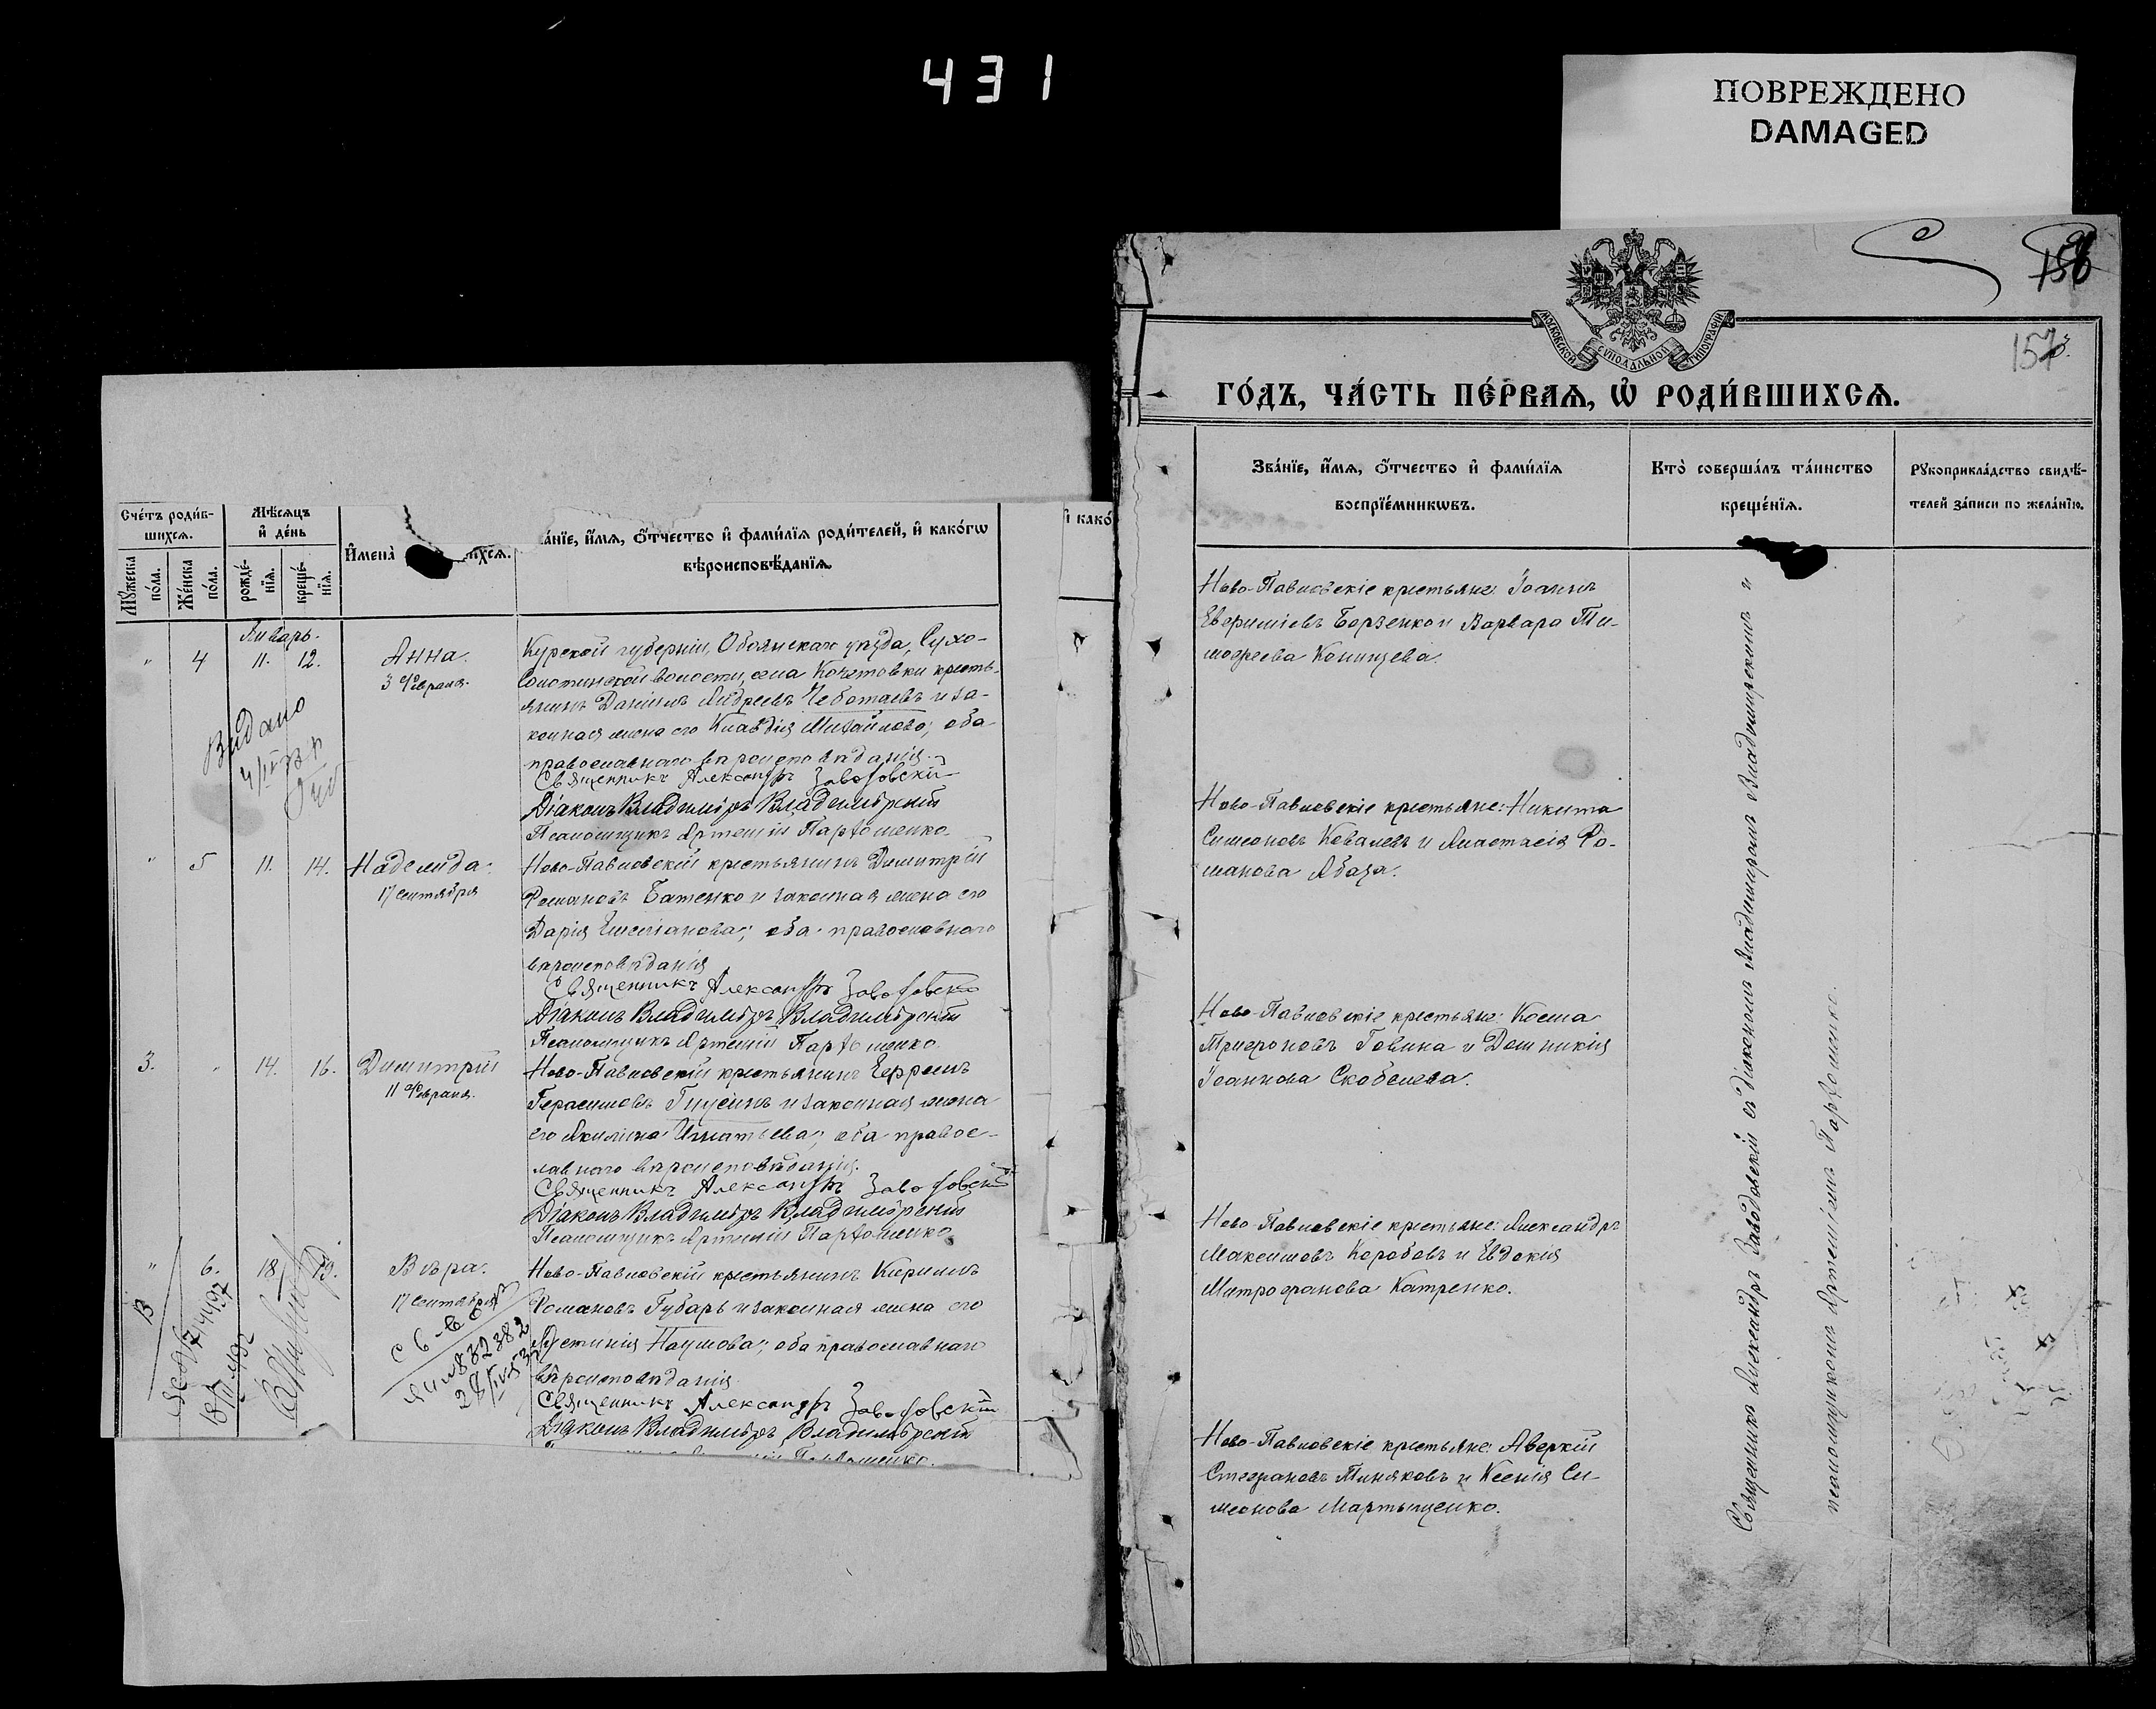 431
ПОВРЕЖДЕНО
DAMAGED
Счётъ роди́в-
шихся.
Мѣ́сяцъ
и҆ де́нь
Мꙋ́жеска
по́ла.
Же́нска
по́ла.
рожде́-
нїя.
креще́-
нїя.
И҆мена̀
ихся.
а́нїе, и҆́мя, ѻ҆́тчество и҆ фами́лїя роди́телей, и҆ како́гѡ
вѣроисповѣ́данїя.
Январь.
" 4 11. 12.
Анна.
3 Февраля.
Курской губерніи, Обоянскаго уѣзда, Сухо-
Солотинской волости, села Кочетовки кресть-
янинъ Даніилъ Андреевъ Чеботаевъ и за-
конная жена его Клавдія Михайлова; оба
православнаго вѣроисповѣданія.
Священникъ Александръ Заводовскій
Діаконъ Владиміръ Владимірскій
Псаломщикъ Артемій Пархоменко.
Видано
" 5 11. 14.
Надежда.
17 Сентября
Ново-Павловскій крестьянинъ Димитрій
Романовъ Батенко и законная жена его
Дарія Емеліанова; оба православнаго
вѣроисповѣданія
Священникъ Александръ Заводовскій
Діаконъ Владиміръ Владимірскій
Псаломщикъ Артемій Пархоменко.
3. " 14. 16.
Димитрій
11 Февраля.
Ново-Павловскій крестьянинъ Ефремъ
Герасимовъ Гнусинъ и законная жена
его Акилина Игнатьева; оба правос-
лавнаго вѣроисповѣданія.
Священникъ Александръ Заводовскій
Діаконъ Владиміръ Владимірскій
Псаломщикъ Артемій Пархоменко.
" 6. 18. 19.
Вѣра.
17 Сентября
Ново-Павловскій крестьянинъ Кириллъ
Романовъ Губарь и законная жена его
Іустинія Наумова; оба православнаго
вѣроисповѣданія.
Священникъ Александръ Заводовскій
Діаконъ Владиміръ Владимірскій
Пархоменко.
882382
и҆ како́
156
157
МОСКОВСКОЙ СѴНОДАЛЬНОЙ ТИПОГРАФІИ
ГО́ДЪ, ЧА́СТЬ ПЕ́РВАЯ, Ѽ РОДИ́ВШИХСЯ.
Зва́нїе, и҆́мя, ѻ҆́тчество и҆ фами́лїя
воспрїе́мникѡвъ.
Кто̀ соверша́лъ та́инство
креще́нїя.
Рꙋкоприкла́дство свидѣ́-
телей за́писи по жела́нїю.
Ново-Павловскіе крестьяне: Іоаннъ
Евфиміевъ Борзенко и Варвара Ти-
мофеева Конищева.
Ново-Павловскіе крестьяне: Никита
Симеоновъ Ковалевъ и Анастасія Ро-
манова Абаза.
Ново-Павловскіе крестьяне: Косма
Трифоновъ Говина и Домникія
Іоаннова Скобелева.
Ново-Павловскіе крестьяне: Александръ
Максимовъ Коробовъ и Евдокія
Митрофанова Катренко.
Ново-Павловскіе крестьяне: Аверкій
Стефановъ Тиняковъ и Ксенія Си-
меонова Мартыщенко.
Священникъ Александръ Заводовскій съ діакономъ Владиміромъ Владимірскимъ и
псаломщикомъ Артеміемъ Пархоменко.